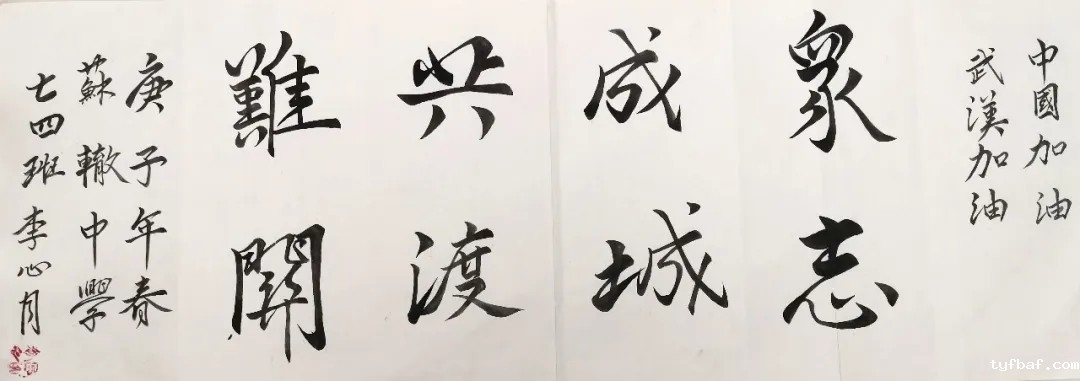 中國加油
武漢加油
眾志
成城
共渡
難關
庚子年春
蘇轍中學
七四班李心月
tyfbaf.com